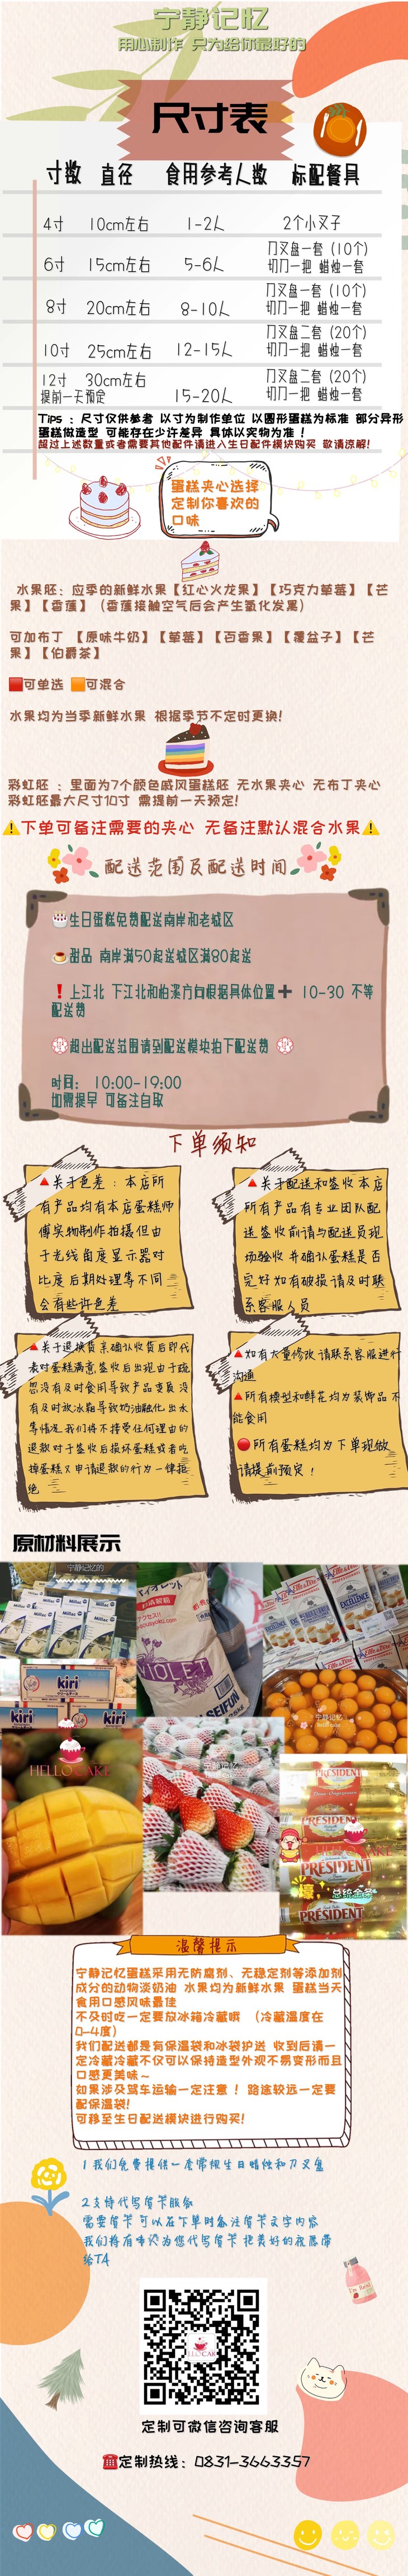 宁静记忆
用心制作 只为给你最好的
尺寸表
寸数 直径 食用参考人数 标配餐具
4寸 10cm左右 1-2人 2个小叉子
6寸 15cm左右 5-6人 刀叉盘一套（10个）
切刀一把 蜡烛一套
8寸 20cm左右 8-10人 刀叉盘一套（10个）
切刀一把 蜡烛一套
10寸 25cm左右 12-15人 刀叉盘二套（20个）
切刀一把 蜡烛一套
12寸 30cm左右 15-20人 刀叉盘二套（20个）
提前一天预定 切刀一把 蜡烛一套
Tips：尺寸仅供参考 以寸为制作单位 以圆形蛋糕为标准 部分异形
蛋糕做造型 可能存在少许差异 具体以实物为准！
超过上述数量或者需要其他配件请进入生日配件模块购买 敬请谅解！
蛋糕夹心选择
定制你喜欢的
口味
水果胚：应季的新鲜水果【红心火龙果】【巧克力草莓】【芒
果】【香蕉】（香蕉接触空气后会产生氧化发黑）
可加布丁 【原味牛奶】【草莓】【百香果】【覆盆子】【芒
果】【伯爵茶】
可单选 可混合
水果均为当季新鲜水果 根据季节不定时更换！
彩虹胚：里面为7个颜色戚风蛋糕胚 无水果夹心 无布丁夹心
彩虹胚最大尺寸10寸 需提前一天预定！
下单可备注需要的夹心 无备注默认混合水果
配送范围及配送时间
生日蛋糕免费配送南岸和老城区
甜品 南岸满50起送城区满80起送
上江北 下江北和柏溪方向根据具体位置➕ 10-30 不等
配送费
超出配送范围请到配送模块拍下配送费
时间： 10:00-19:00
如需提早 可备注自取
下单须知
关于色差：本店所
有产品均有本店蛋糕师
傅实物制作拍摄但由
于光线角度显示器对
比度后期处理等不同
会有些许色差
关于配送和签收本店
所有产品有专业团队配
送签收前请与配送员现
场验收并确认蛋糕是否
完好如有破损请及时联
系客服人员
关于退换货:亲确认收货后即代
表对蛋糕满意,签收后出现由于疏
忽没有及时食用导致产品变质没
有及时放冰箱导致奶油融化.出水
等情况.我们将不接受任何理由的
退款对于签收后损坏蛋糕或者吃
掉蛋糕又申请退款的行为一律拒
绝
如有大量修改请联系客服进行
沟通
所有模型和鲜花均为装饰品不
能食用
所有蛋糕均为下单现做
请提前预定！
原材料展示
宁静记忆的
Millac
kiri
kiri
kiri
VIOLET
SEIFUN
EXCELLENCE
Elle&Vire
宁静记忆
HELLO CAKE
PRESIDENT
PRESIDENT
PRESIDENT
PRESIDENT
温馨提示
宁静记忆蛋糕采用无防腐剂、无稳定剂等添加剂
成分的动物淡奶油 水果均为新鲜水果 蛋糕当天
食用口感风味最佳
不及时吃一定要放冰箱冷藏哦 （冷藏温度在
0-4度）
我们配送都是有保温袋和冰袋护送 收到后请一
定冷藏冷藏不仅可以保持造型外观不易变形而且
口感更美味~
如果涉及驾车运输一定注意！路途较远一定要
配保温袋!
可移至生日配送模块进行购买！
1 我们免费提供一套常规生日蜡烛和刀叉盘
2.支持代写贺卡服务
需要贺卡 可以在下单时备注贺卡文字内容
我们将有専人为您代写贺卡 把美好的祝愿带
给TA
HELLOCAKE
定制可微信咨询客服
定制热线：0831-3663357